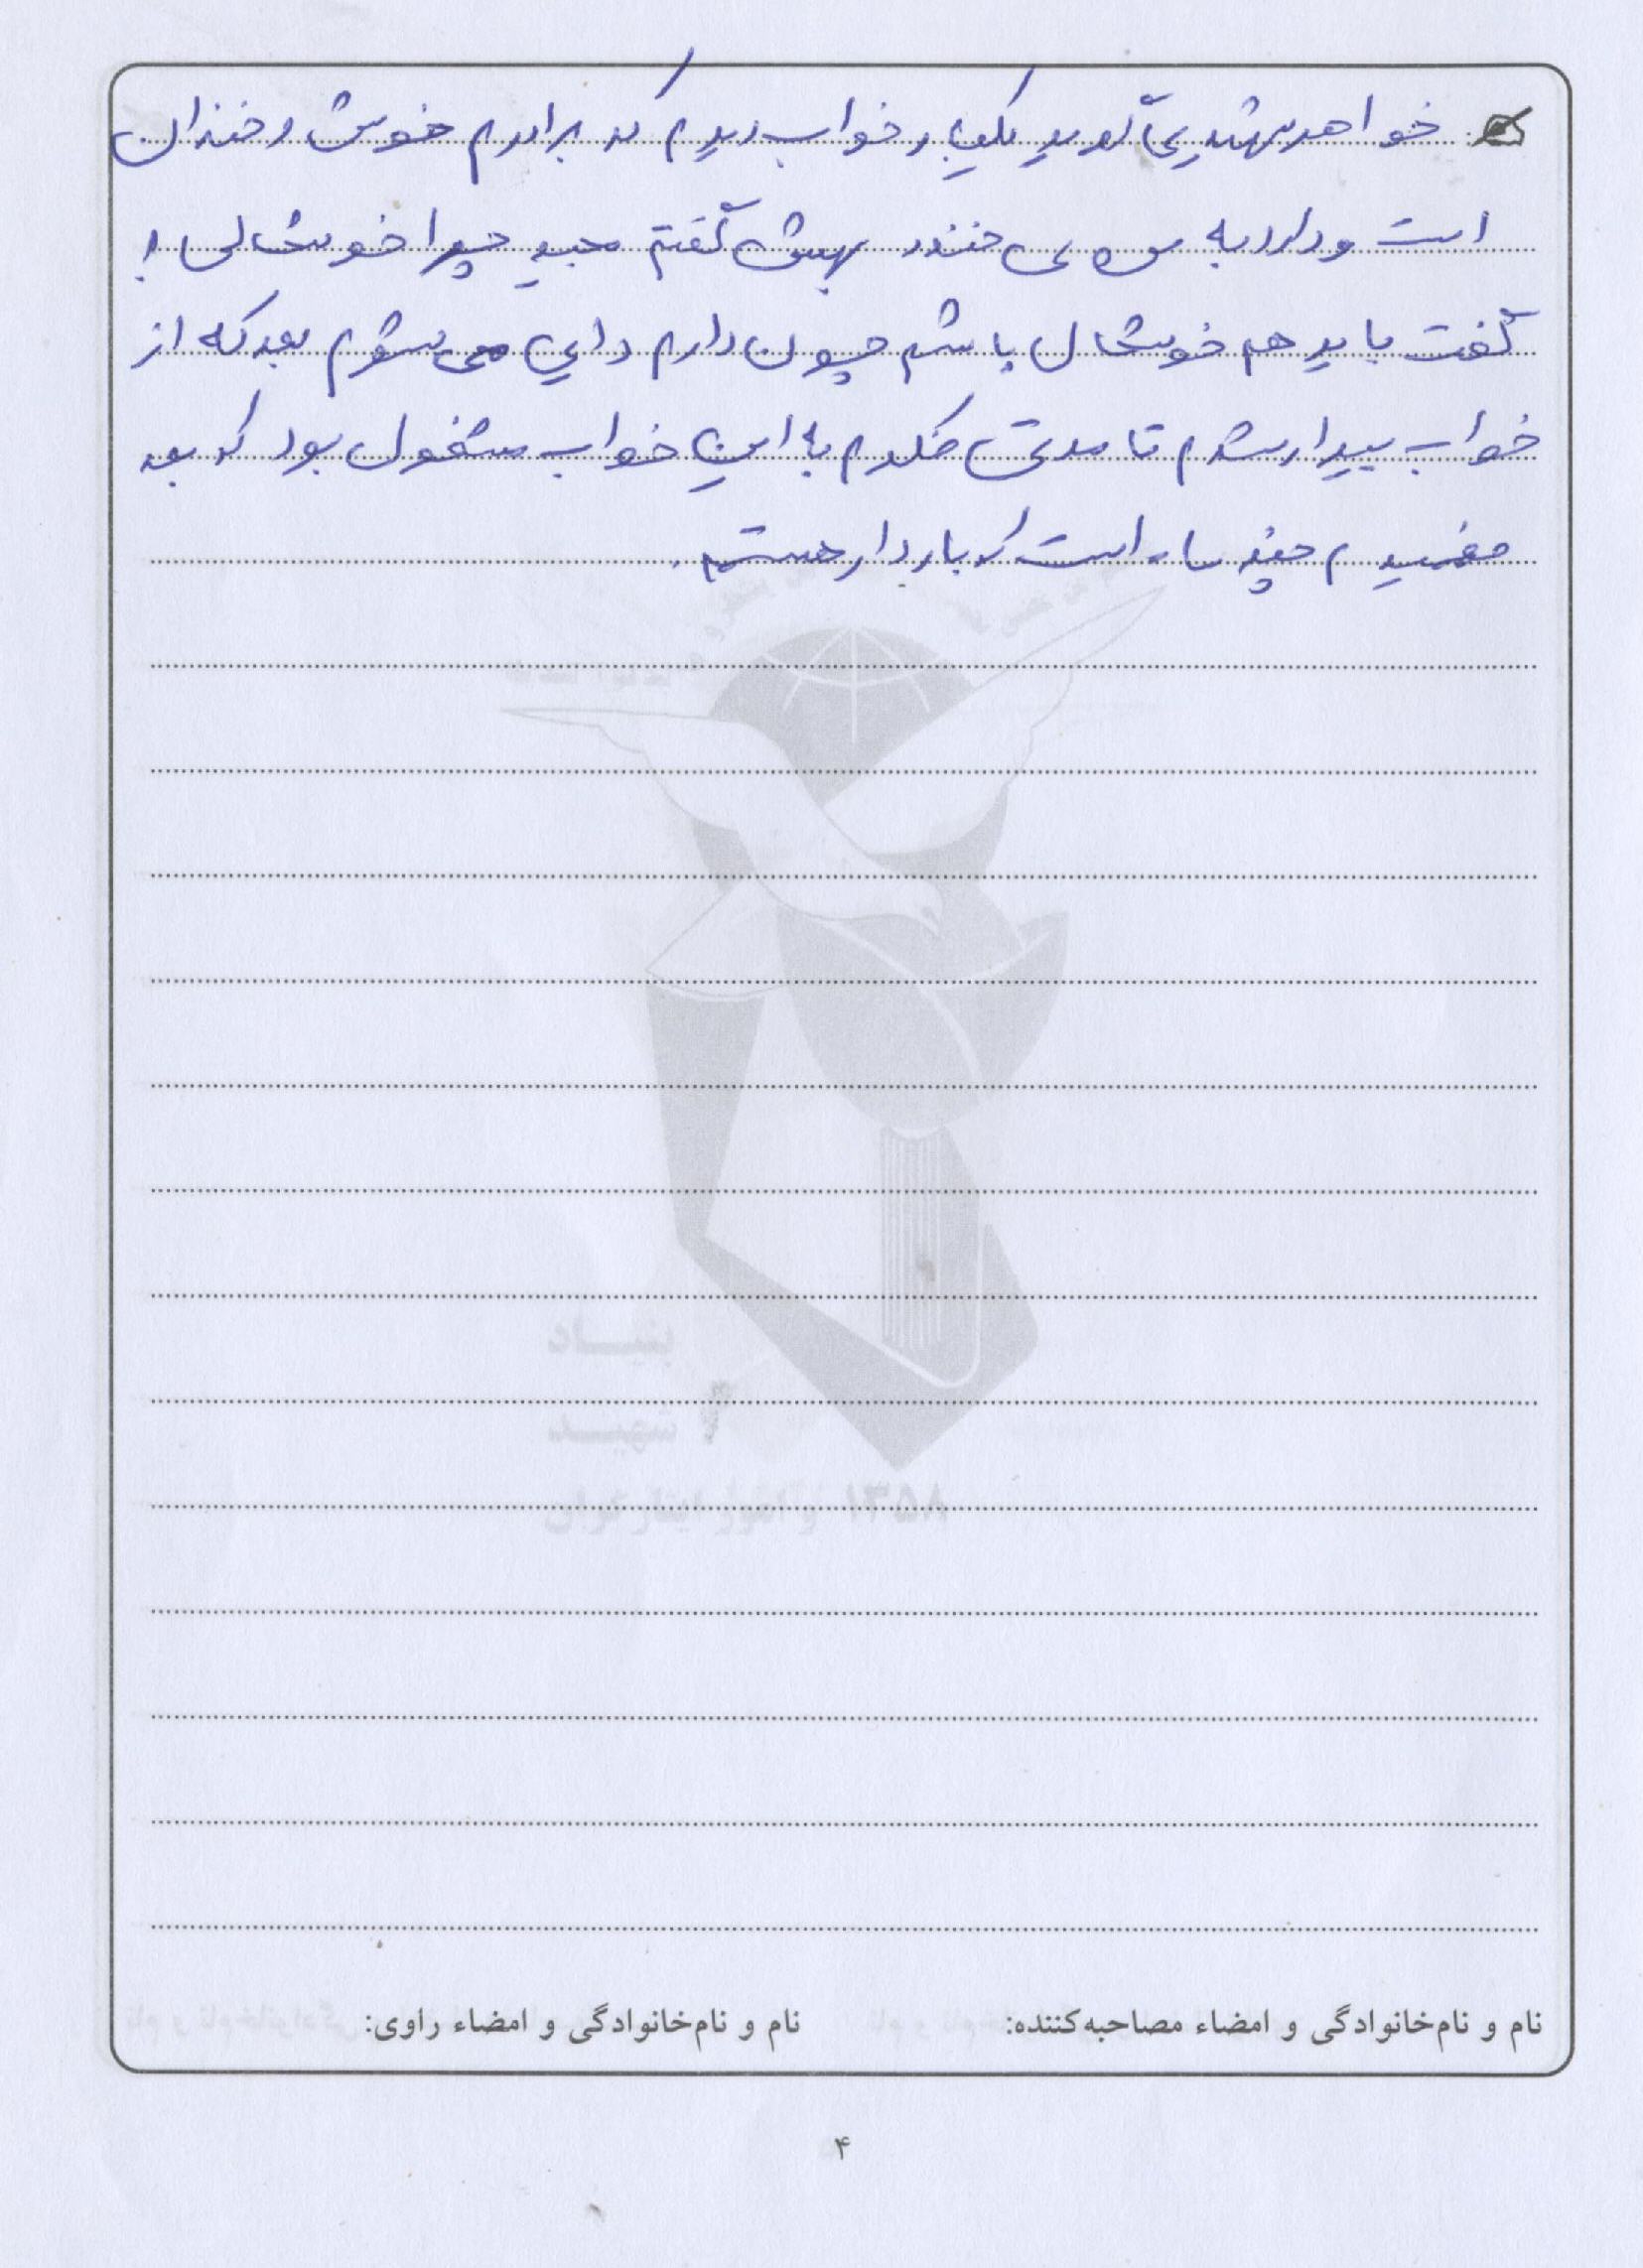 خواهر شهید می گوید یکبار خواب دیدم که برادرم خوش و خندان
است و دارد به من می خندد بهش گفتم مجید چرا خوشحالی !
گفت باید هم خوشحال باشم چون دارم دایی می شوم بعد که از
خواب بیدار شدم تا مدتی فکرم با این خواب مشغول بود که بعد
فهمیدم چند ماه است که باردار هستم .
بنیاد
شهید
و امور ایثارگران ۱۳۵۸
نام و نام‌خانوادگی و امضاء مصاحبه‌کننده: نام و نام‌خانوادگی و امضاء راوی:
۴